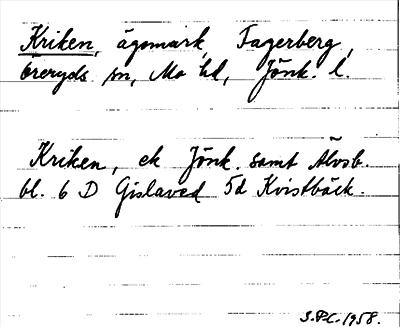 Kriken, ägomark, Fagerberg,
Öreryds sn, Mo hd, Jönk. l.
Kriken, ek Jönk. samt Älvsb.
bl. 6 D Gislaved 5d Kvistbäck.
S.P.C. 1958.